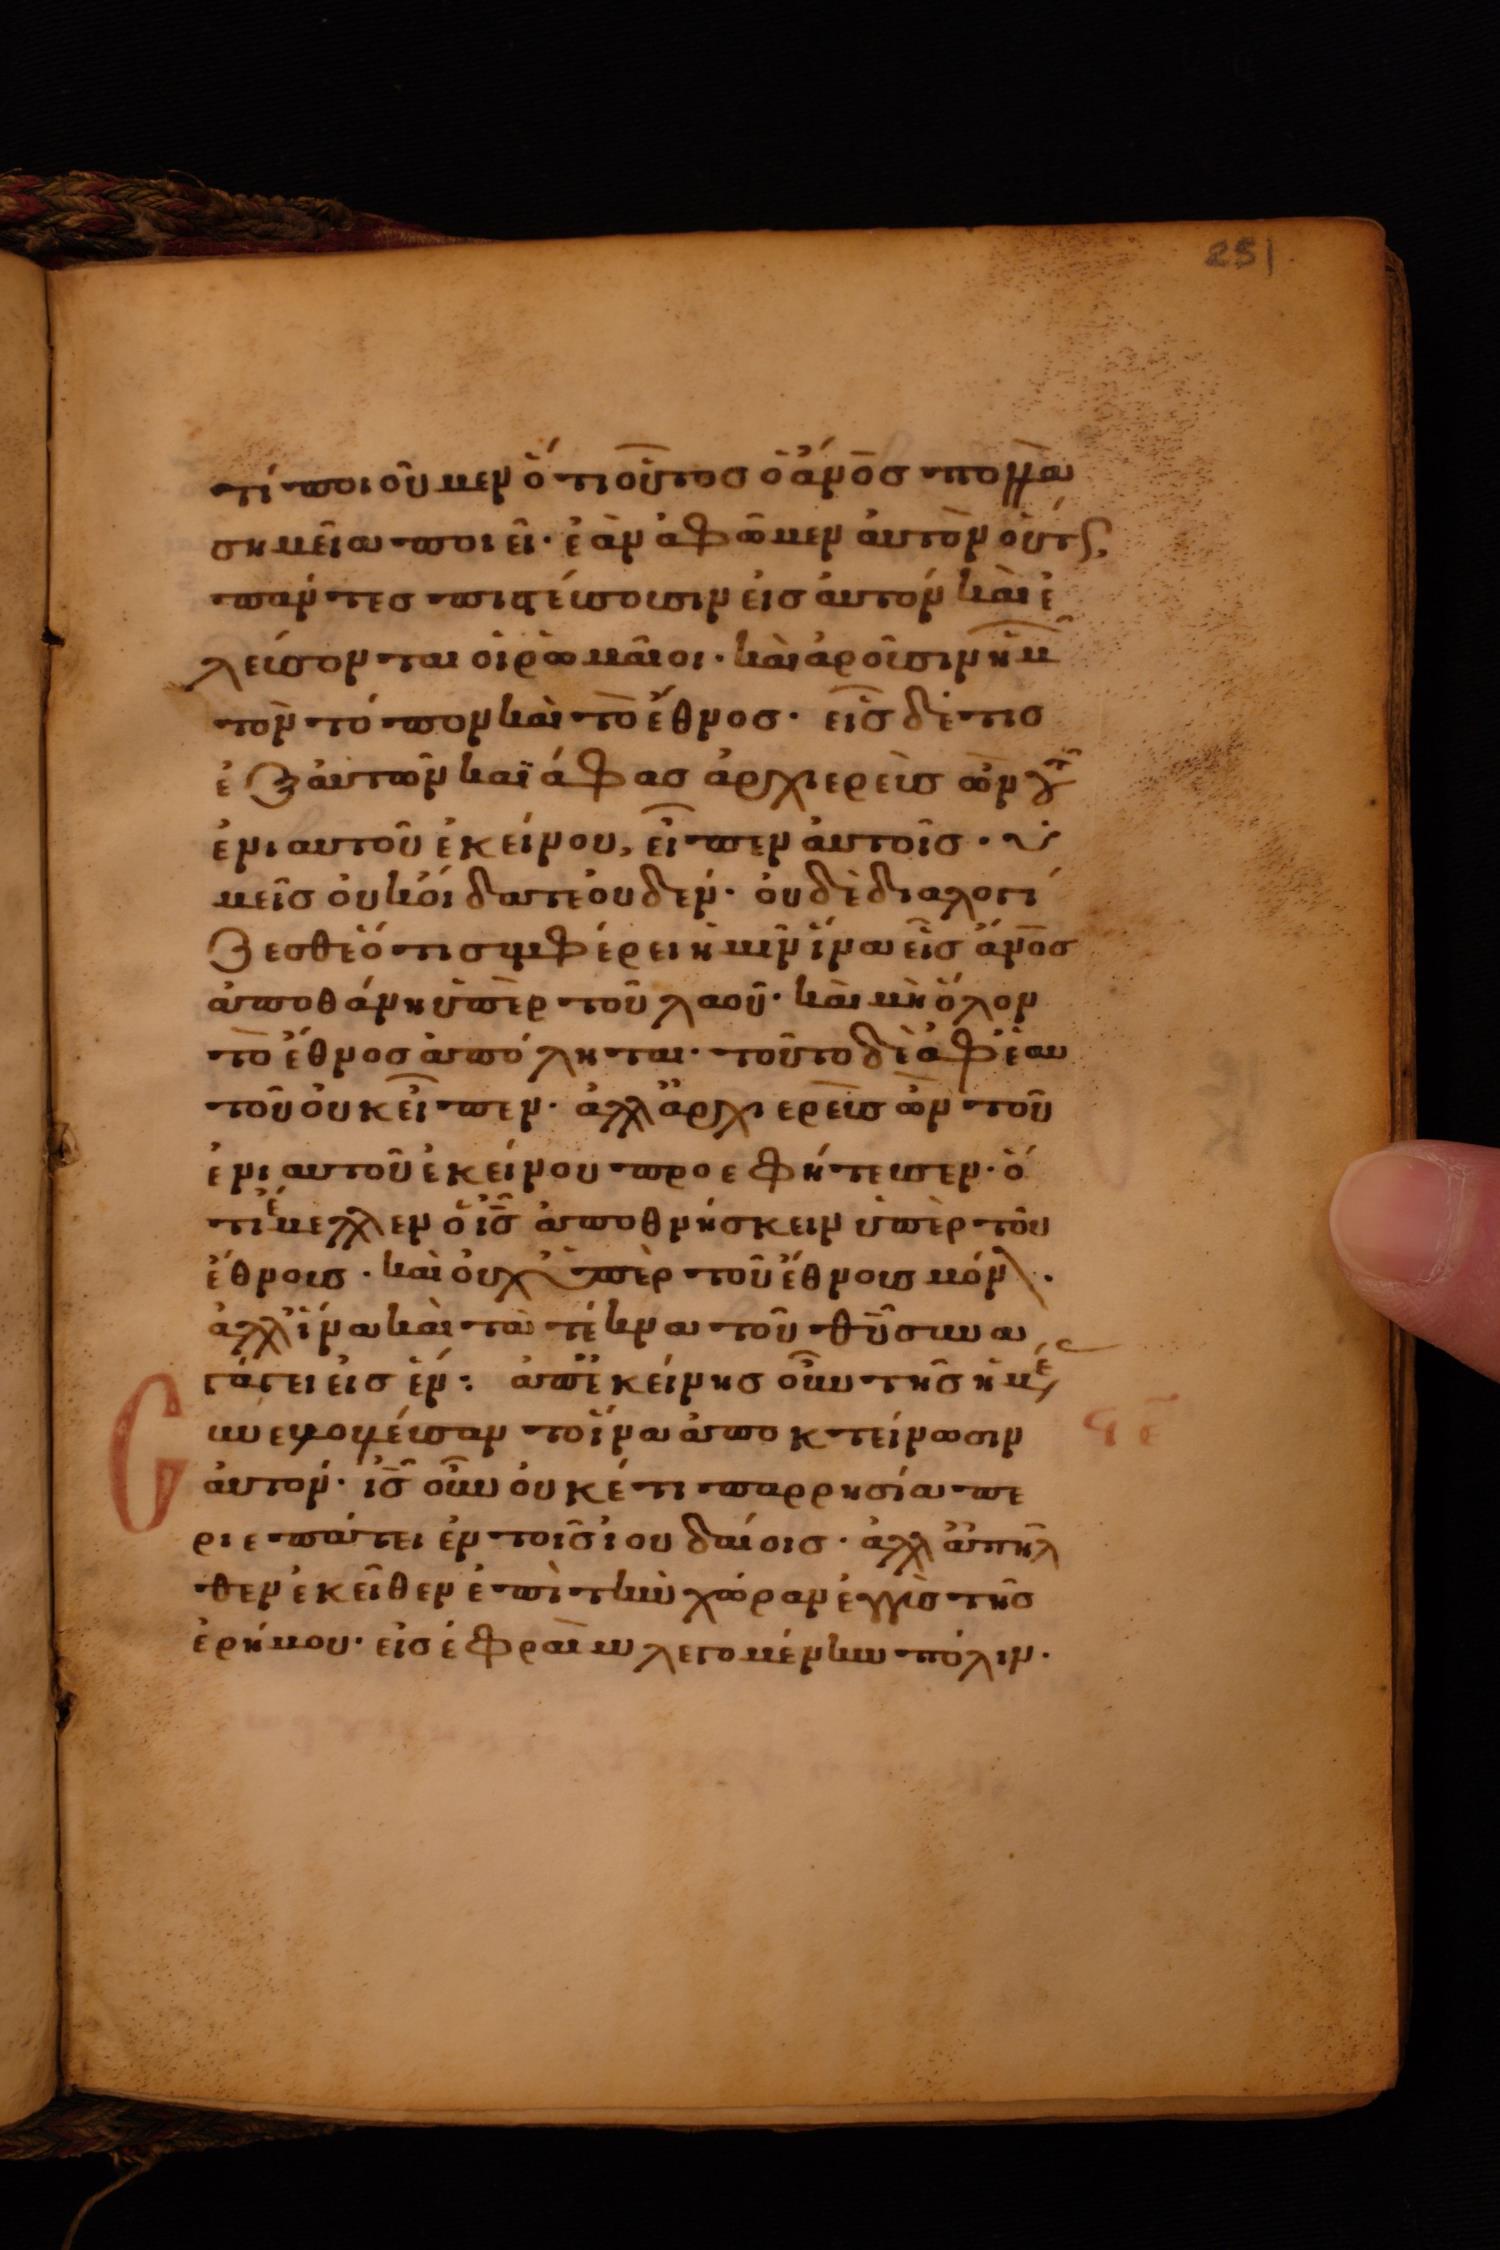 251
τί ποιοῦμεν ὅτι οὗτος ὁ ἄνο̅ς πολλὰ
σημεῖα ποιεῖ· ἐὰν ἀφῶμεν ἀυτὸν ὁύτς,
πάντες πιστέυσουσιν ἐις ἀυτόν καὶ ἐ
λέυσονται ὁι ῥωμαῖοι· καὶ ἀροῦσιν ἡμ
τὸν τόπον καὶ τὸ ἔθνος· εἷς δέ τις
ἐξ ἀυτῶν καϊάφας ἀρχιερεὺς ὢν τ
ἐνιαυτοῦ ἐκείνου, εἶπεν ἀυτοῖς· ὑ
μεῖς ὀυκ ὄιδατε ὀυδέν· ὀυδὲ διαλογί
ζεσθε ὅτι συμφέρει ἡμῖν ἵνα εἷς ἄνο̅ς
ἀποθάνη ὑπὲρ τοῦ λαοῦ· καὶ μὴ ὅλον
τὸ ἔθνος ἀπόληται· τοῦτο δὲ ἀφ' ἑαυ
τοῦ ὀυκ εἶπεν· ἀλλ' ἀρχιερεὺς ὢν τοῦ
ἐνιαυτοῦ ἐκείνου προεφήτευσεν· ὅ
τι ἔμελλεν ὁ ι̅ς̅ ἀποθνήσκειν ὑπὲρ τοῦ
ἔθνους· καὶ ὀυχ ὑπὲρ τοῦ ἔθνους μόν·
ἀλλ' ἵνα καὶ τὰ τέκνα τοῦ θ̅υ̅ συνα
γάγει ἐις ἕν: ἀπ' ἐκείνης οὖν τῆς ἡμέ
συνεβουλέυσαντο ἵνα ἀποκτείνωσιν
ἀυτόν· ι̅ς̅ οὖν ὀυκέτι παρρησία πε
ριεπάτει ἐν τοῖς ἰουδάιοις· ἀλλ' ἀπῆλ
θεν ἐκεῖθεν ἐπὶ τὴν χώραν ἐγγὺς τῆς
ἐρήμου· εἰς ἐφραὶμ λεγομένην πόλιν·